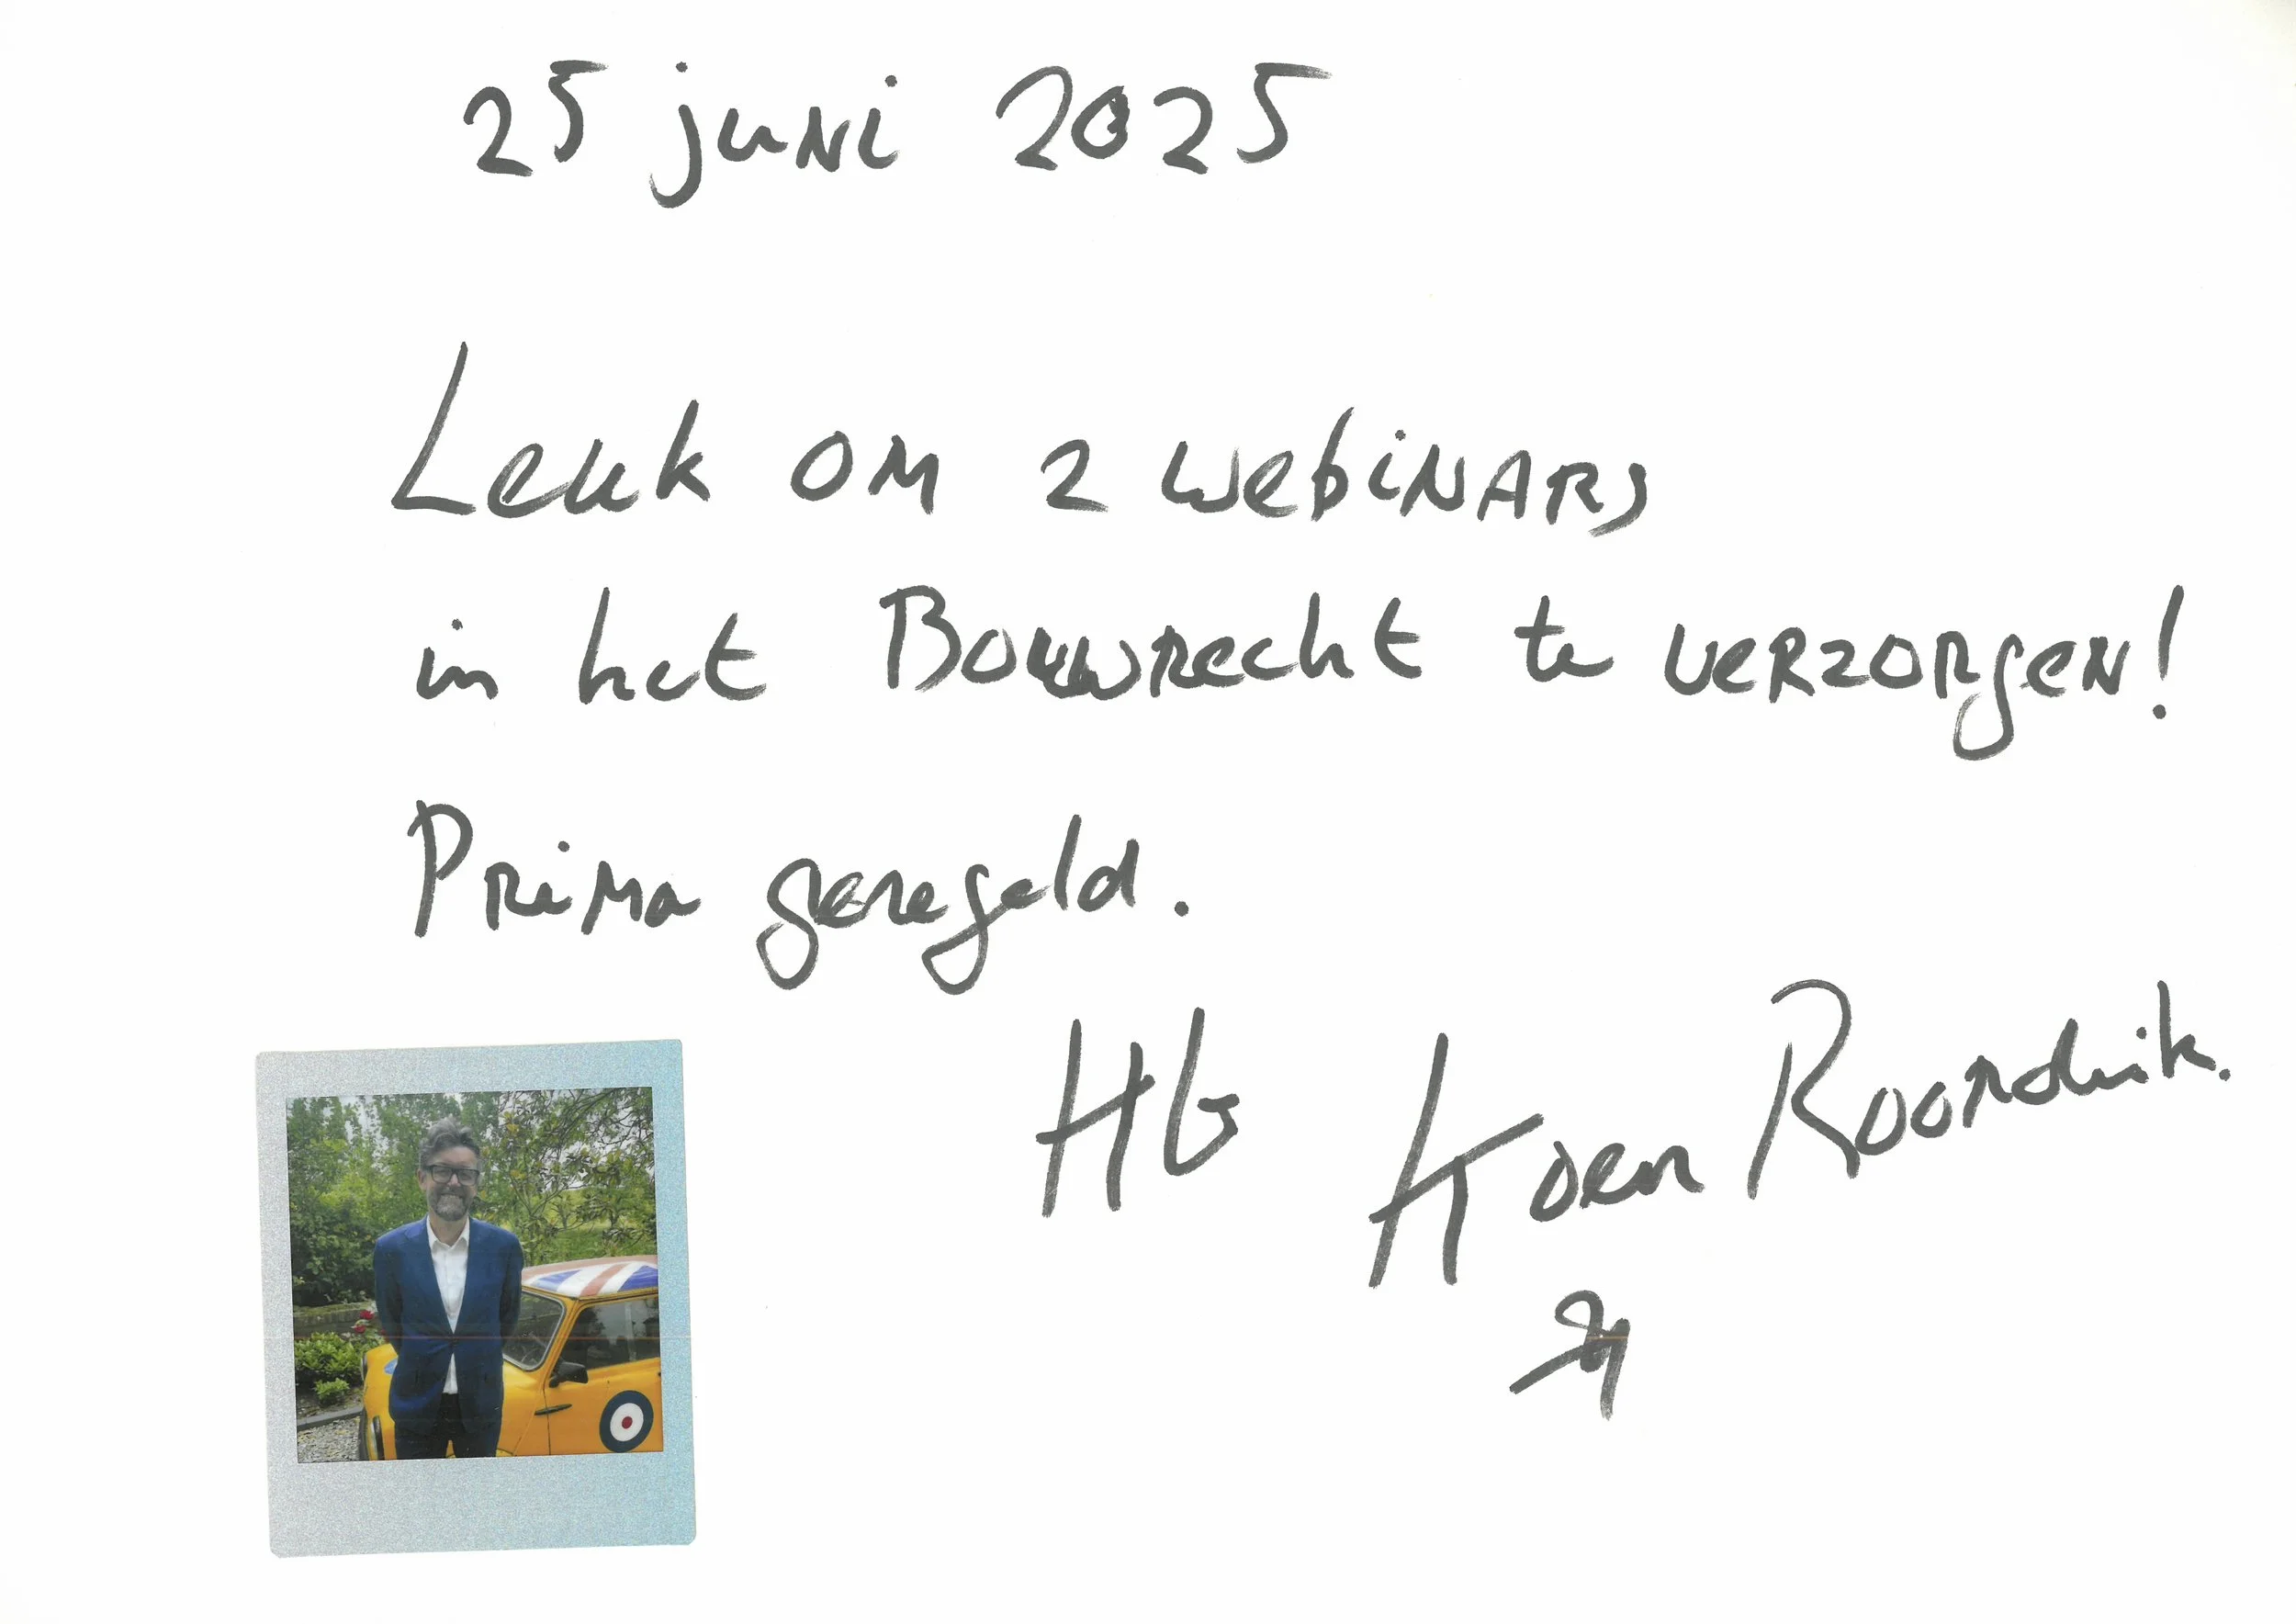 25 juni 2025
Leuk om 2 webinars
in het Bouwrecht te verzorgen!
Prima geregeld.
HG Koen Roordink.